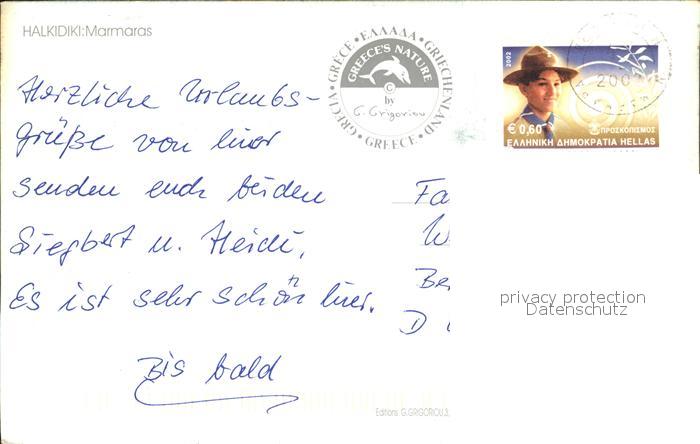 HALKIDIKI:Marmaras
GRÈCE · ΕΛΛΑΔΑ · GRIECHENLAND · GREECE · GRECIA ·
GREECE'S NATURE
©
by
G. Grigoriou
2002
€ 0,60
ΠΡΟΣΚΟΠΙΣΜΟΣ
ΕΛΛΗΝΙΚΗ ΔΗΜΟΚΡΑΤΙΑ HELLAS
200
Herzliche Urlaubs-
grüße von hier
senden euch beiden
Siegbert u. Heidi,
Es ist sehr schön hier.
Bis bald
Fa
W
Be
D
privacy protection
Datenschutz
Editions G.GRIGORIOU.3,